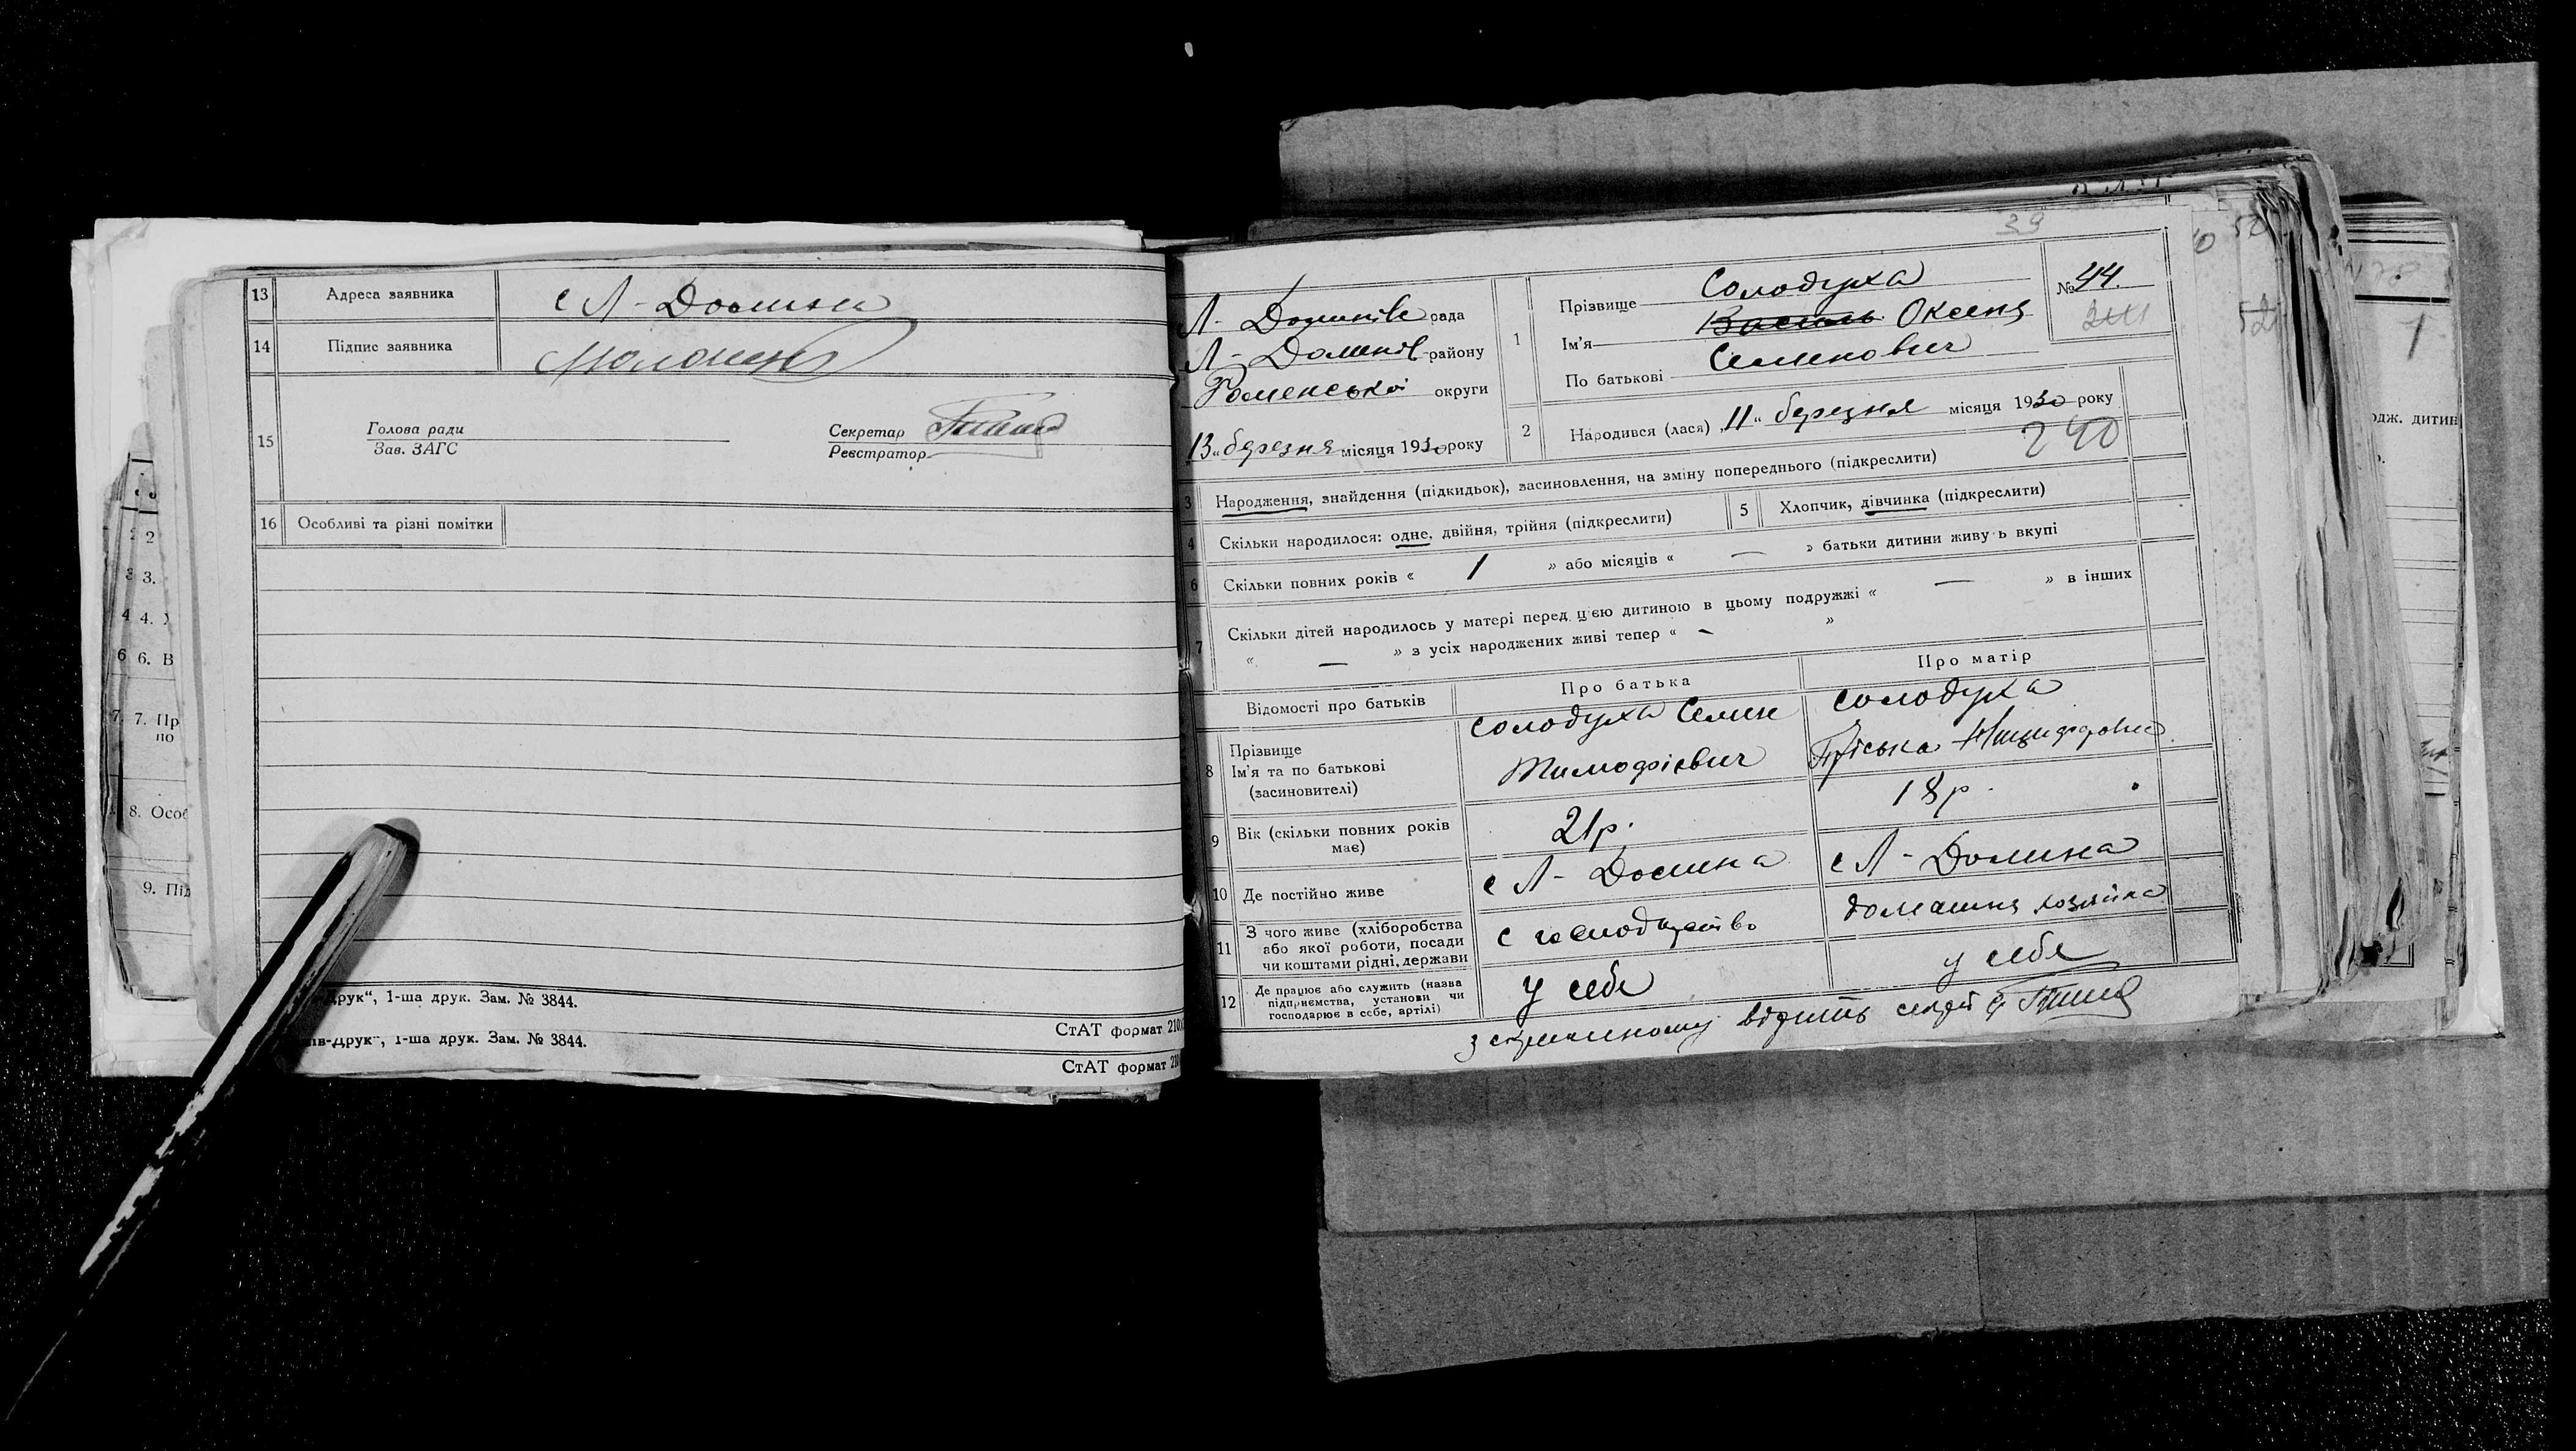 13 Адреса заявника с Л - Долина
14 Підпис заявника
15 Голова ради
Зав. ЗАГС
Секретар
Реєстратор
16 Особливі та різні помітки
друк“, 1-ша друк. Зам. № 3844.
СтАТ формат 210
ів-друк“, 1-ша друк. Зам. № 3844.
СтАТ формат 210
2
3.
4.
6. В
7. Пр
по
8. Особ
9. Під
39
Л - Долинів рада
Л - Долинів району
Роменської округи
„13“ березня місяця 1930 року
1 Прізвище Солодуха
Ім’я Василь Оксена
По батькові Семенович
№ 44.
2 Народився (лася) „11“ березня місяця 1930 року
240
3 Народження, знайдення (підкидьок), засиновлення, на зміну попереднього (підкреслити)
4 Скільки народилося: одне, двійня, трійня (підкреслити)
5 Хлопчик, дівчинка (підкреслити)
6 Скільки повних років « 1 » або місяців « — » батьки дитини живуть вкупі
7 Скільки дітей народилось у матері перед цією дитиною в цьому подружжі « — » в інших
« — » з усіх народжених живі тепер « - »
Відомості про батьків
Про батька
Про матір
8 Прізвище
Ім’я та по батькові
(засиновителі)
Солодуха Семен
Тимофієвич
Солодуха
Пріська
9 Вік (скільки повних років
має)
21 р.
18 р.
10 Де постійно живе
с Л - Долина
с Л - Долина
11 З чого живе (хліборобства
або якої роботи, посади
чи коштами рідні, держави
с господарство
домашня хозяйка
12 Де працює або служить (назва
підприємства, установи чи
господарює в себе, артілі)
у себе
у себе
одж. дитин